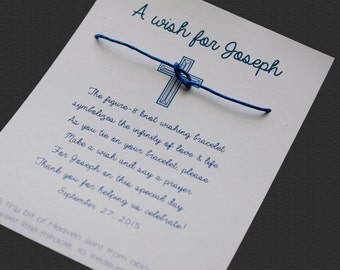 A wish for Joseph
The figure-8 knot wishing bracelet
symbolizes the infinity of love & life
As you tie on your bracelet, please
Make a wish and say a prayer
For Joseph on this special day
Thank you for helping us celebrate!
September 27, 2015
tiny bit of Heaven sent from above
sweet little miracle to treasure